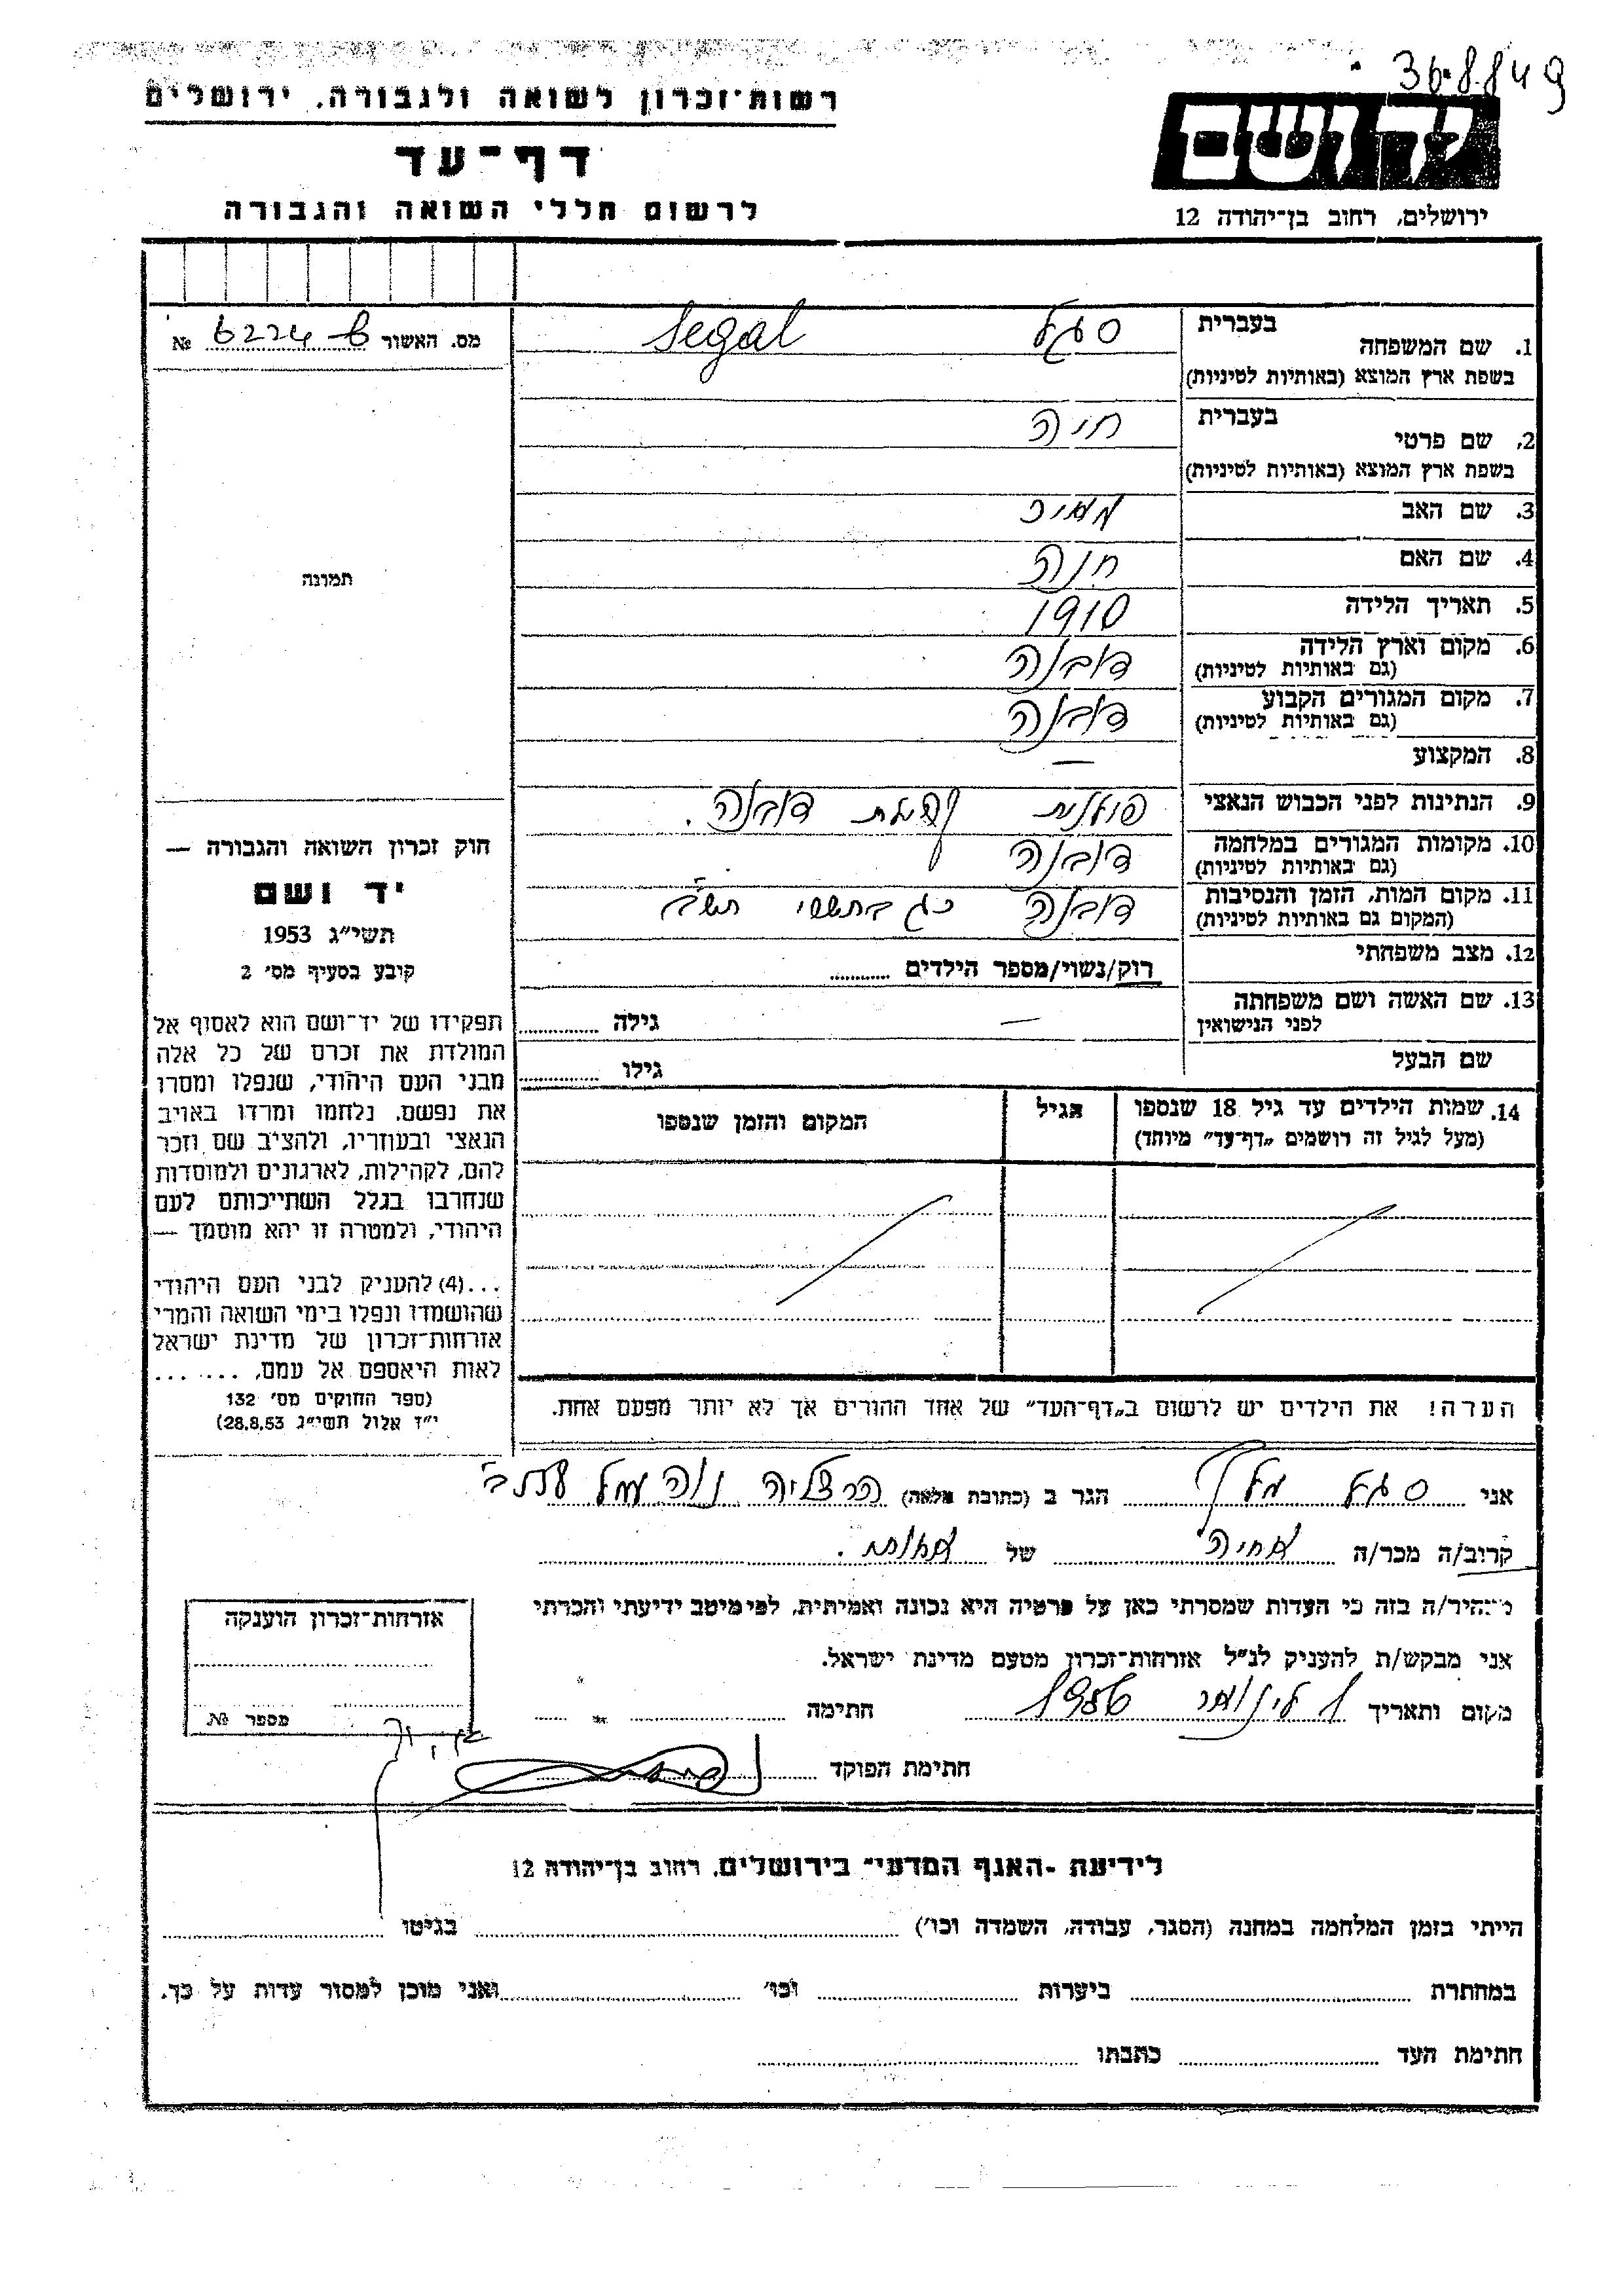 36.8.849
רשות־זכרון לשואה ולגבורה. ירושלים
דף־עד
לרשום חללי השואה והגבורה
יד ושם
ירושלים, רחוב בן־יהודה 12
1. שם המשפחה
בעברית סגל Segal
בשפת ארץ המוצא (באותיות לטיניות)
2. שם פרטי
בעברית חיה
בשפת ארץ המוצא (באותיות לטיניות)
3. שם האב
4. שם האם חנה
5. תאריך הלידה 1910
6. מקום וארץ הלידה דובנה
(גם באותיות לטיניות)
7. מקום המגורים הקבוע דובנה
(גם באותיות לטיניות)
8. המקצוע —
9. הנתינות לפני הכבוש הנאצי פולנית קהילת דובנה.
10. מקומות המגורים במלחמה דובנה
(גם באותיות לטיניות)
11. מקום המות, הזמן והנסיבות דובנה כג בתשרי תש"ג
(המקום גם באותיות לטיניות)
12. מצב משפחתי רוק/נשוי/מספר הילדים
13. שם האשה ושם משפחתה — גילה
לפני הנישואין
שם הבעל גילו
14. שמות הילדים עד גיל 18 שנספו הגיל המקום והזמן שנספו
(מעל לגיל זה רושמים "דף־עד" מיוחד)
מס. האשור № 6224
תמונה
חוק זכרון השואה והגבורה —
יד ושם
תשי"ג 1953
קובע בסעיף מס׳ 2
תפקידו של יד־ושם הוא לאסוף אל
המולדת את זכרם של כל אלה
מבני העם היהודי, שנפלו ומסרו
את נפשם, נלחמו ומרדו באויב
הנאצי ובעוזריו, ולהציב שם וזכר
להם, לקהילות, לארגונים ולמוסדות
שנחרבו בגלל השתייכותם לעם
היהודי, ולמטרה זו יהא מוסמך —
...(4) להעניק לבני העם היהודי
שהושמדו ונפלו בימי השואה והמרי
אזרחות־זכרון של מדינת ישראל
לאות היאספם אל עמם. ... ...
(ספר החוקים מס׳ 132
י"ד אלול תשי"ג 28.8.53)
הערה! את הילדים יש לרשום ב"דף־העד" של אחד ההורים אך לא יותר מפעם אחת.
אני סגל מלך הגר ב (כתובת מלאה) הרצליה נוה עמל
קרוב/ה מכר/ה אחיה של
מצהיר/ה בזה כי העדות שמסרתי כאן על פרטיה היא נכונה ואמיתית, לפי מיטב ידיעתי והכרתי
אני מבקש/ת להעניק לנ"ל אזרחות־זכרון מטעם מדינת ישראל.
מקום ותאריך 1956 חתימה
חתימת הפוקד
אזרחות־זכרון הוענקה
מספר №
לידיעת "האגף המדעי" בירושלים. רחוב בן־יהודה 12
הייתי בזמן המלחמה במחנה (הסגר, עבודה, השמדה וכו׳) בגיטו
במחתרת ביערות וכו׳ ואני מוכן למסור עדות על כך.
חתימת העד כתבתו